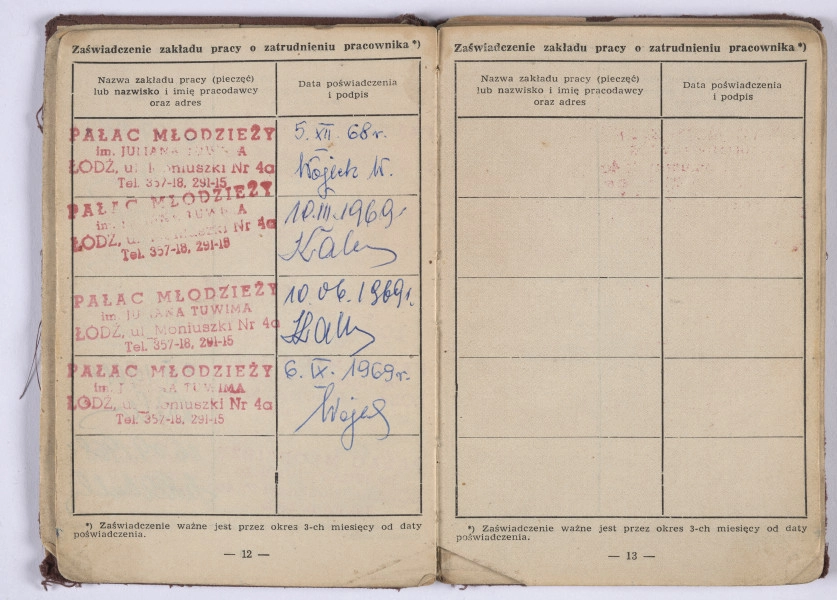 Zaświadczenie zakładu pracy o zatrudnieniu pracownika *)
Nazwa zakładu pracy (pieczęć)
lub nazwisko i imię pracodawcy
oraz adres
Data poświadczenia
i podpis
PAŁAC MŁODZIEŻY
im. JULIANA TUWIMA
ŁÓDŹ, ul. Moniuszki Nr 4a
Tel. 357-18, 291-15
5. XII. 68 r.
PAŁAC MŁODZIEŻY
im. JULIANA TUWIMA
ŁÓDŹ, ul. Moniuszki Nr 4a
Tel. 357-18, 291-15
10.III.1969 r.
PAŁAC MŁODZIEŻY
im. JULIANA TUWIMA
ŁÓDŹ, ul. Moniuszki Nr 4a
Tel. 357-18, 291-15
10.06.1969 r.
PAŁAC MŁODZIEŻY
im. JULIANA TUWIMA
ŁÓDŹ, ul. Moniuszki Nr 4a
Tel. 357-18, 291-15
6. IX. 1969 r.
*) Zaświadczenie ważne jest przez okres 3-ch miesięcy od daty
poświadczenia.
— 12 —
Zaświadczenie zakładu pracy o zatrudnieniu pracownika *)
Nazwa zakładu pracy (pieczęć)
lub nazwisko i imię pracodawcy
oraz adres
Data poświadczenia
i podpis
*) Zaświadczenie ważne jest przez okres 3-ch miesięcy od daty
poświadczenia.
— 13 —